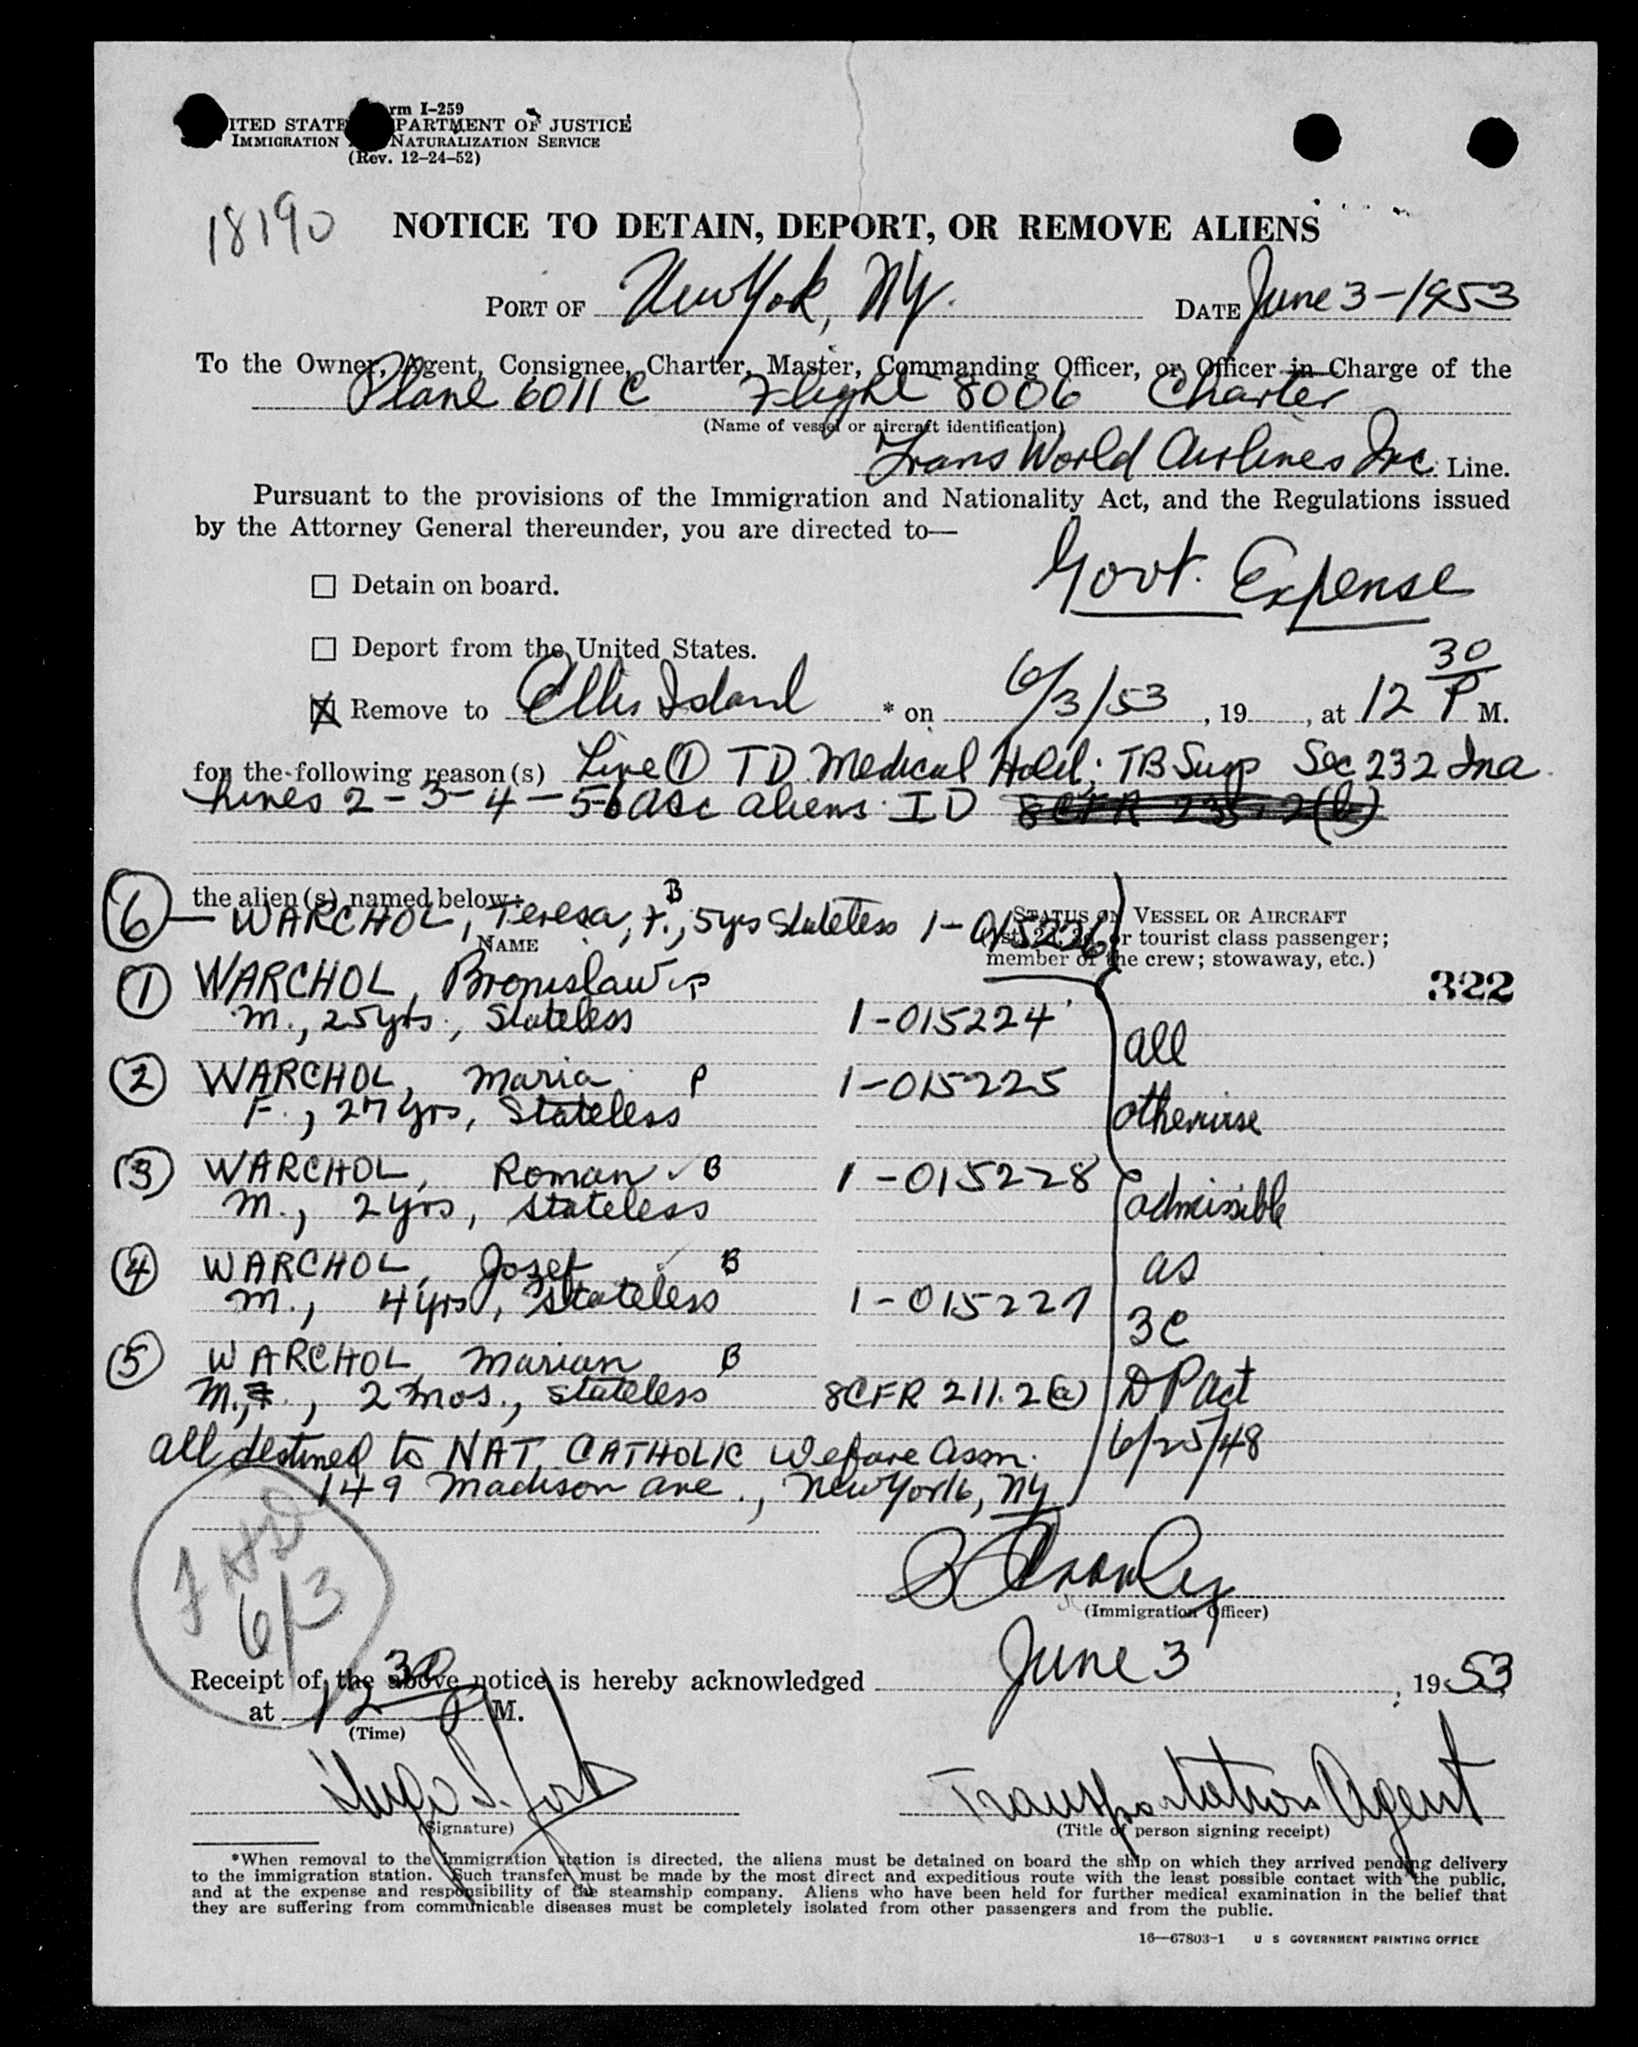 rm I-259
ITED STATE PARTMENT OF JUSTICE
IMMIGRATION NATURALIZATION SERVICE
(Rev. 12-24-52)
18190
NOTICE TO DETAIN, DEPORT, OR REMOVE ALIENS
PORT OF New York, NY. DATE June 3-1953
To the Owner, Agent, Consignee, Charter, Master, Commanding Officer, or Officer in Charge of the
Plane 6011C Flight 8006 Charter
(Name of vessel or aircraft identification)
Trans World Airlines Inc. Line.
Pursuant to the provisions of the Immigration and Nationality Act, and the Regulations issued
by the Attorney General thereunder, you are directed to—
Govt. Expense
☐ Detain on board.
☐ Deport from the United States.
☒ Remove to Ellis Island * on 6/3/53, 19 , at 12 30 P M.
for the following reason(s) Line ① TD Medical Hold; TB Susp Sec 232 Ina
Lines 2-3-4-5-6 acc aliens ID 8 CFR 235.2(b)
the alien(s) named below:
⑥ — WARCHOL, Teresa, F., B 5yrs Stateless 1-015226
NAME
STATUS ON VESSEL OR AIRCRAFT
(1st, 2d, or tourist class passenger;
member of the crew; stowaway, etc.)
322
① WARCHOL, Bronislaw P
M., 25yrs., Stateless 1-015224
all
② WARCHOL, Maria P 1-015225
F., 27 yrs, Stateless
otherwise
③ WARCHOL, Roman B 1-015228
M., 2yrs, stateless
admissible
④ WARCHOL, Jozef B
as
M., 4yrs, stateless 1-015227
3C
⑤ WARCHOL Marian B
M., 2 mos., stateless 8CFR 211.2(a) DP act
6/25/48
all destined to NAT. CATHOLIC Wefare Assn.
149 Madison Ave., New York, NY
6/3
(Immigration Officer)
Receipt of the above notice is hereby acknowledged June 3, 1953,
at 12 30 P M.
(Time)
Transportation Agent
(Signature) (Title of person signing receipt)
*When removal to the immigration station is directed, the aliens must be detained on board the ship on which they arrived pending delivery
to the immigration station. Such transfer must be made by the most direct and expeditious route with the least possible contact with the public,
and at the expense and responsibility of the steamship company. Aliens who have been held for further medical examination in the belief that
they are suffering from communicable diseases must be completely isolated from other passengers and from the public.
16—67803-1 U S GOVERNMENT PRINTING OFFICE